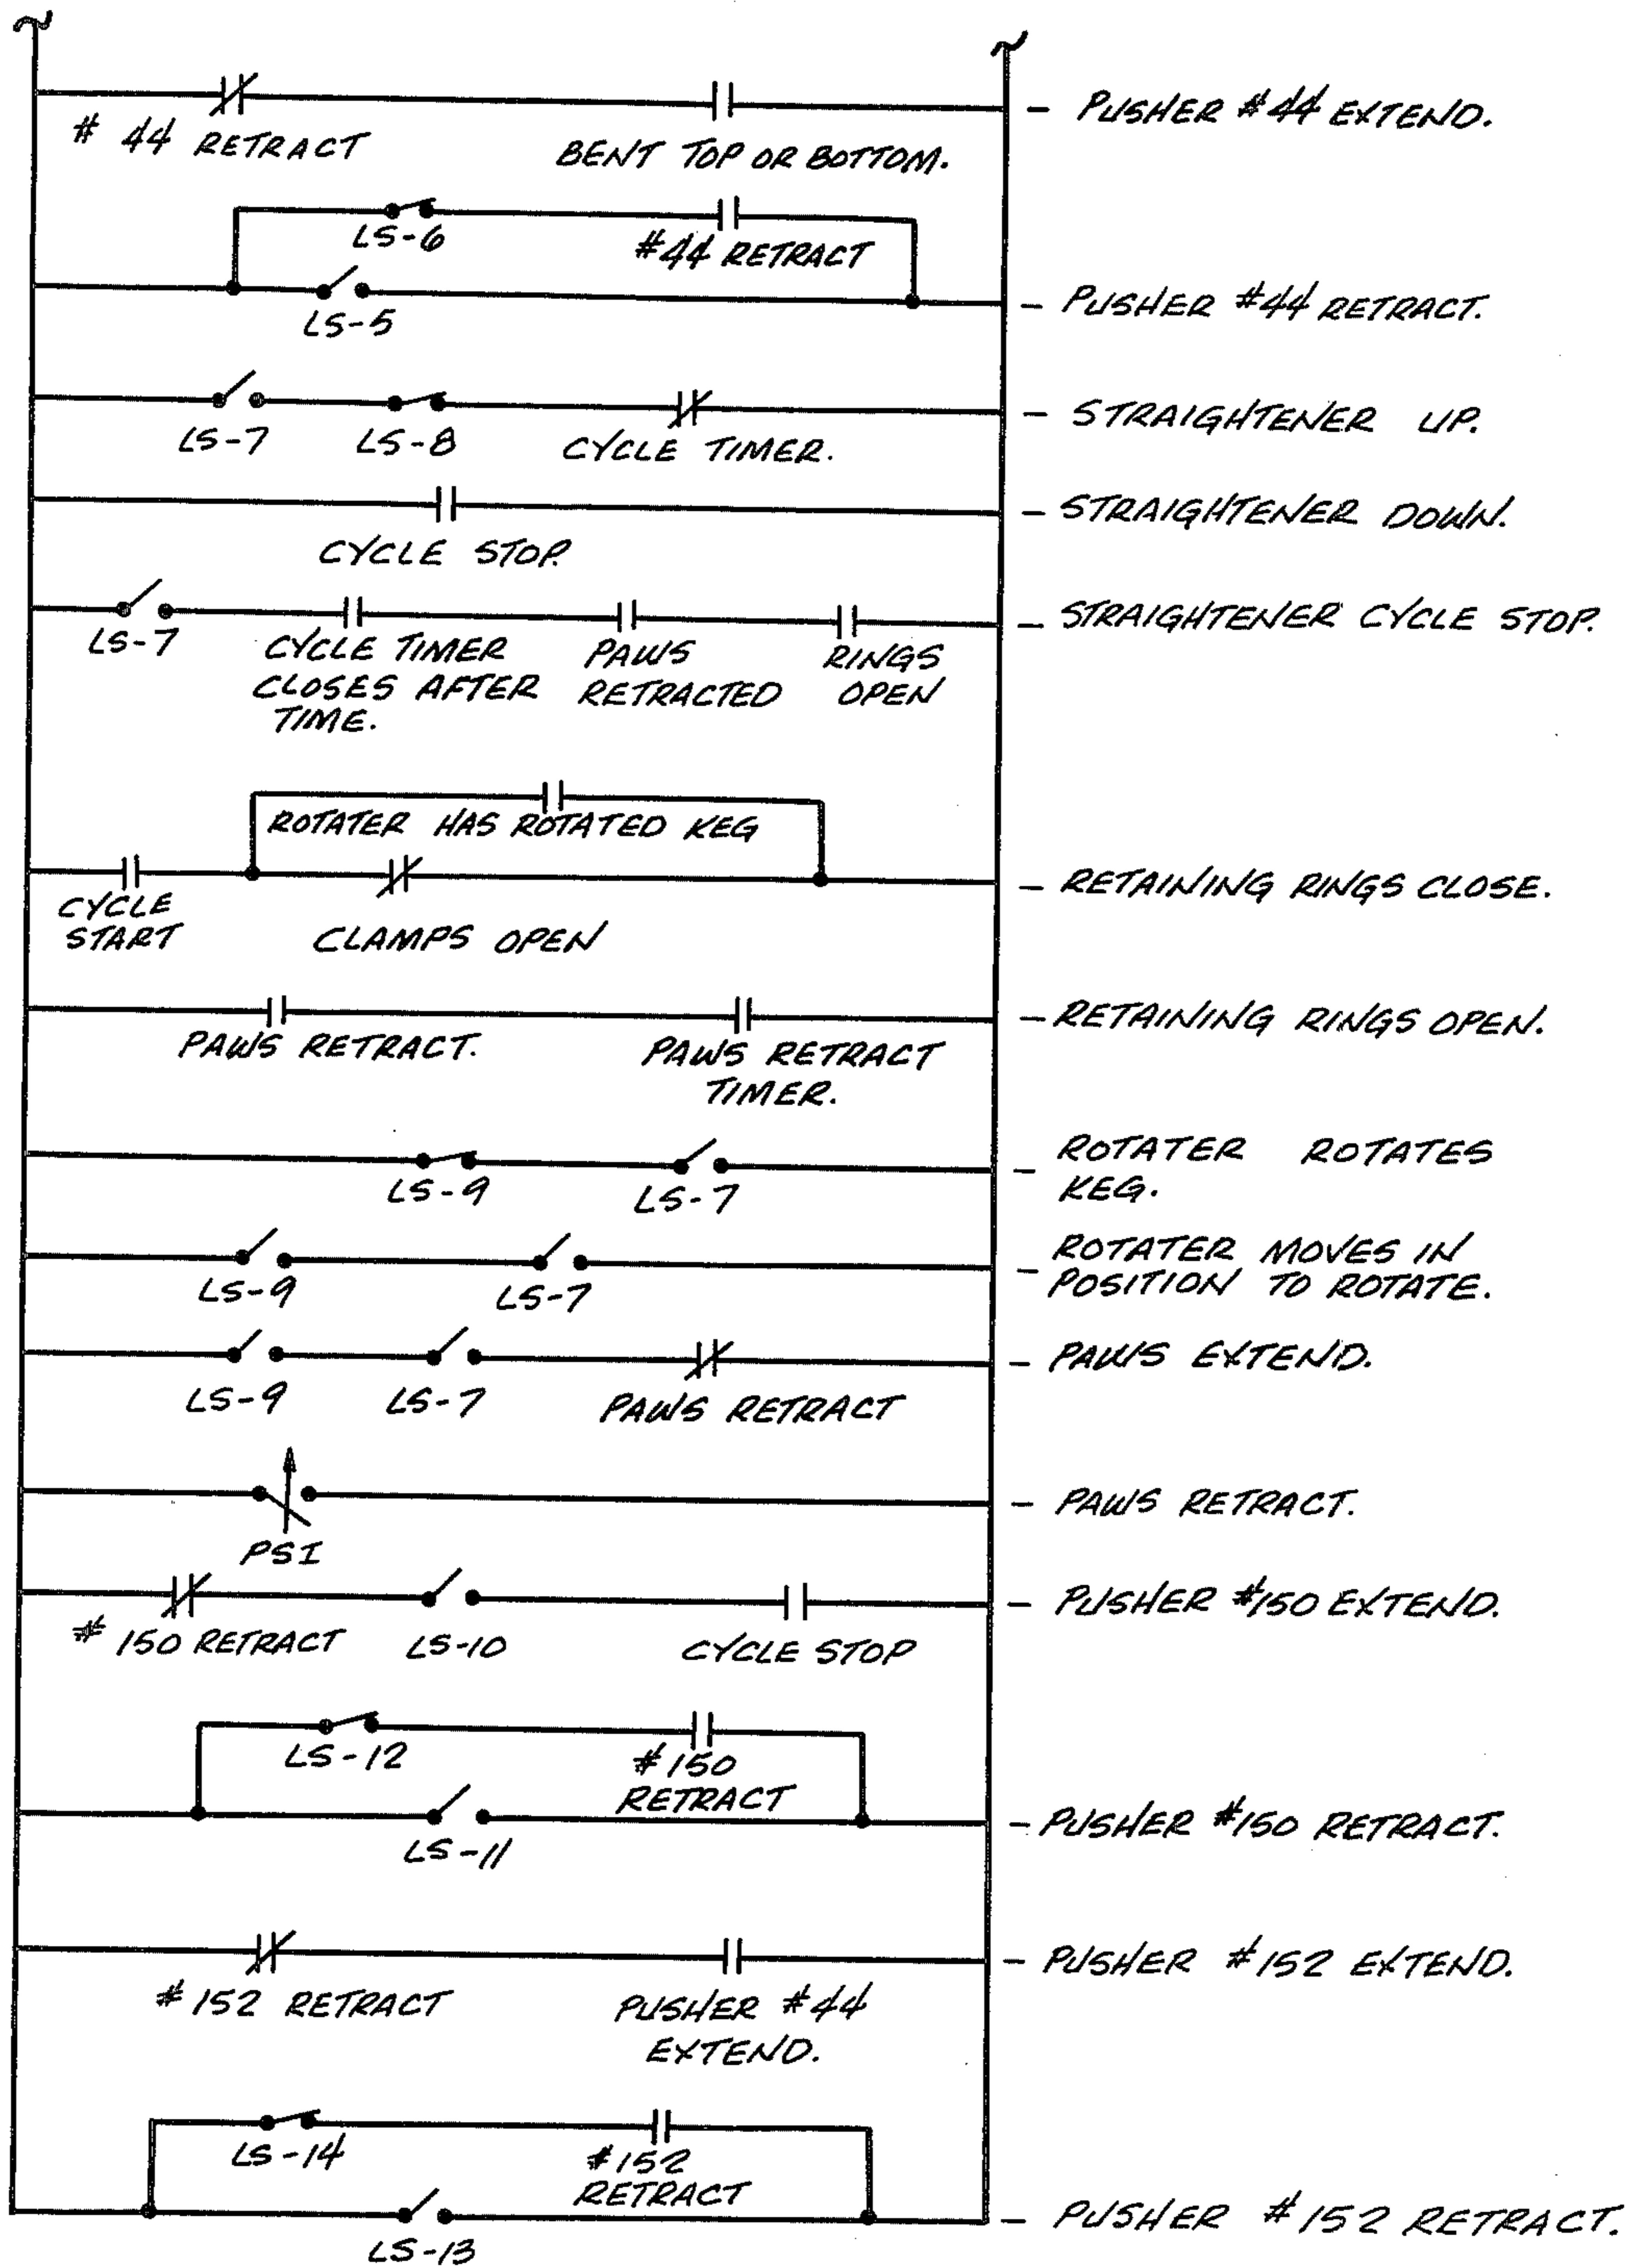 # 44 RETRACT
BENT TOP OR BOTTOM.
- PUSHER #44 EXTEND.
LS-6
#44 RETRACT
LS-5
- PUSHER #44 RETRACT.
LS-7
LS-8
CYCLE TIMER.
- STRAIGHTENER UP.
CYCLE STOP.
- STRAIGHTENER DOWN.
LS-7
CYCLE TIMER
CLOSES AFTER
TIME.
PAWS
RETRACTED
RINGS
OPEN
- STRAIGHTENER CYCLE STOP.
ROTATER HAS ROTATED KEG
CYCLE
START
CLAMPS OPEN
- RETAINING RINGS CLOSE.
PAWS RETRACT.
PAWS RETRACT
TIMER.
- RETAINING RINGS OPEN.
LS-9
LS-7
- ROTATER ROTATES
KEG.
LS-9
LS-7
- ROTATER MOVES IN
POSITION TO ROTATE.
LS-9
LS-7
PAWS RETRACT
- PAWS EXTEND.
PSI
- PAWS RETRACT.
# 150 RETRACT
LS-10
CYCLE STOP
- PUSHER #150 EXTEND.
LS-12
#150
RETRACT
LS-11
- PUSHER #150 RETRACT.
# 152 RETRACT
PUSHER #44
EXTEND.
- PUSHER #152 EXTEND.
LS-14
#152
RETRACT
LS-13
- PUSHER #152 RETRACT.